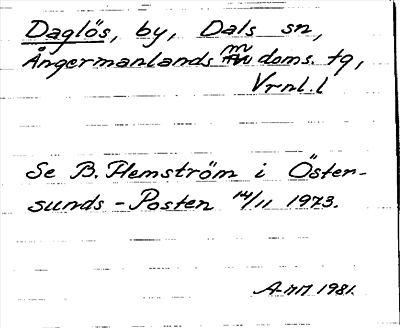 Daglös, by, Dals sn,
Ångermanlands m doms. tg,
Vrnl. l
Se B. Flemström i Öster-
sunds-Posten 14/11 1973.
A-MM 1981.